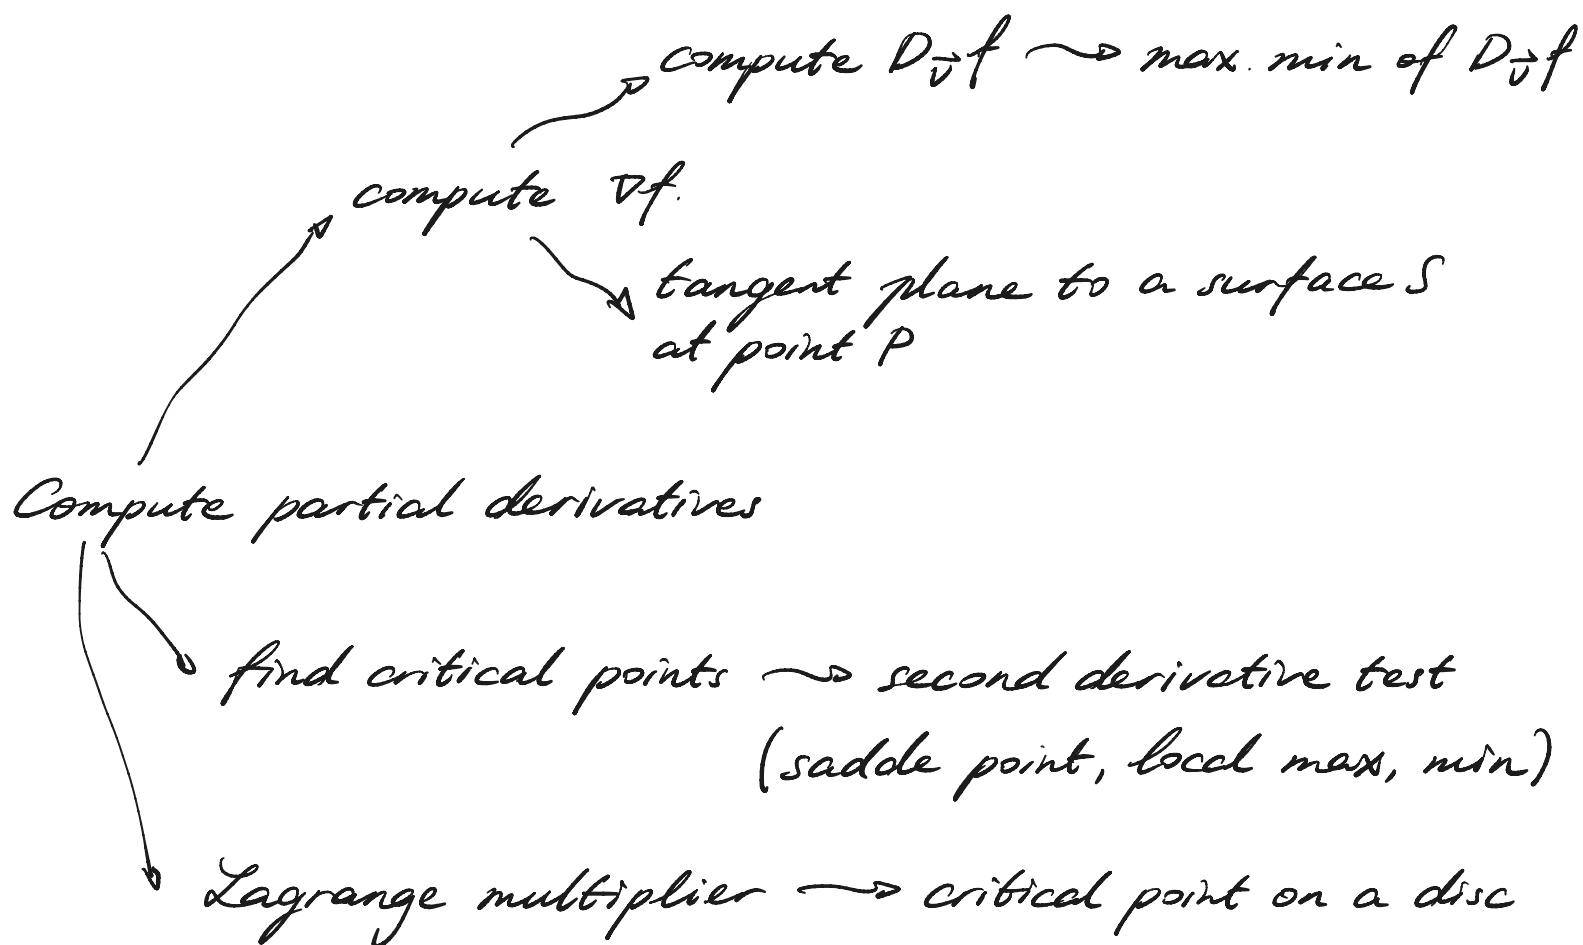 compute D_v⃗ f → max. min of D_v⃗ f
compute ∇f.
tangent plane to a surface S
at point P
Compute partial derivatives
find critical points → second derivative test
(saddle point, local max, min)
Lagrange multiplier → critical point on a disc